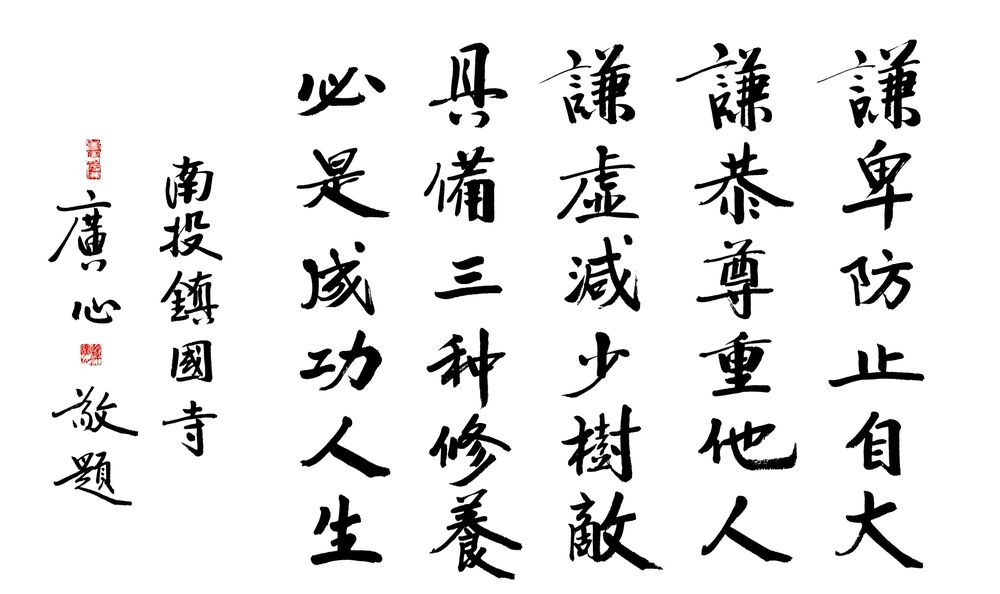 謙卑防止自大
謙恭尊重他人
謙虛減少樹敵
具備三种修養
必是成功人生
南投鎮國寺
廣心敬題